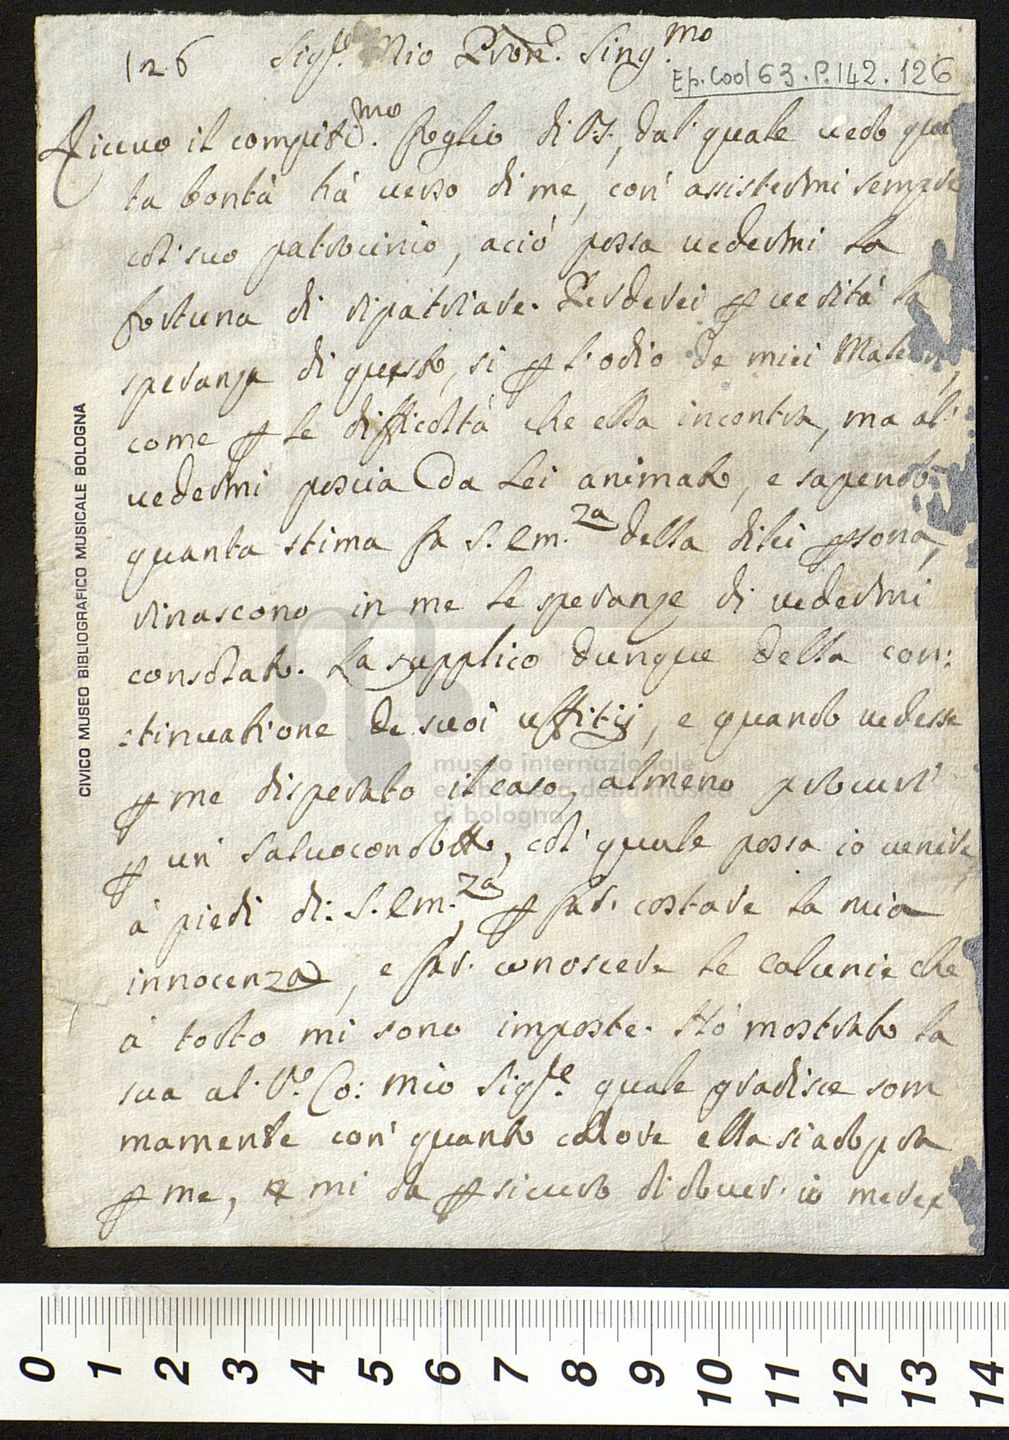 126 Sig.re Mio Pron.e Sing.mo
Ep. Cod 63. P. 142. 126
Riceuo il compitis.mo foglio di VS., dal' quale uedo quan
ta bontà hà uerso di me, con' assistermi sempre
col' suo patrocinio, aciò possa uedermi la
fortuna di ripatriare. Perderei p uerità la
speranze di questo, si p l'odio de miei Maleuoli,
come p le difficoltà che ella incontra, ma al'
uedermi poscia da Lei animato, e sapendo
quanta stima fa S. Em.za della di lei psona,
rinascono in me le speranze di uedermi
consolato. La supplico dunque della con:
:tinuatione de suoi uffitij, e quando uedesse
p me disperato il caso, almeno procuri
p un' saluocondotto, col' quale possa io uenire,
à piedi di: S. Em.za, p far' costare la mia
innocenza, e far' conoscere le calunie che
à torto mi sono imposte. Hò mostrato la
sua al' S.r Co: mio Sig.re quale gradisce som
mamente con' quanto calore ella si adopra
p me, e mi da p sicuro di douer' io mere
CIVICO MUSEO BIBLIOGRAFICO MUSICALE BOLOGNA
museo internazionale
e biblioteca della musica
di bologna
0 1 2 3 4 5 6 7 8 9 10 11 12 13 14